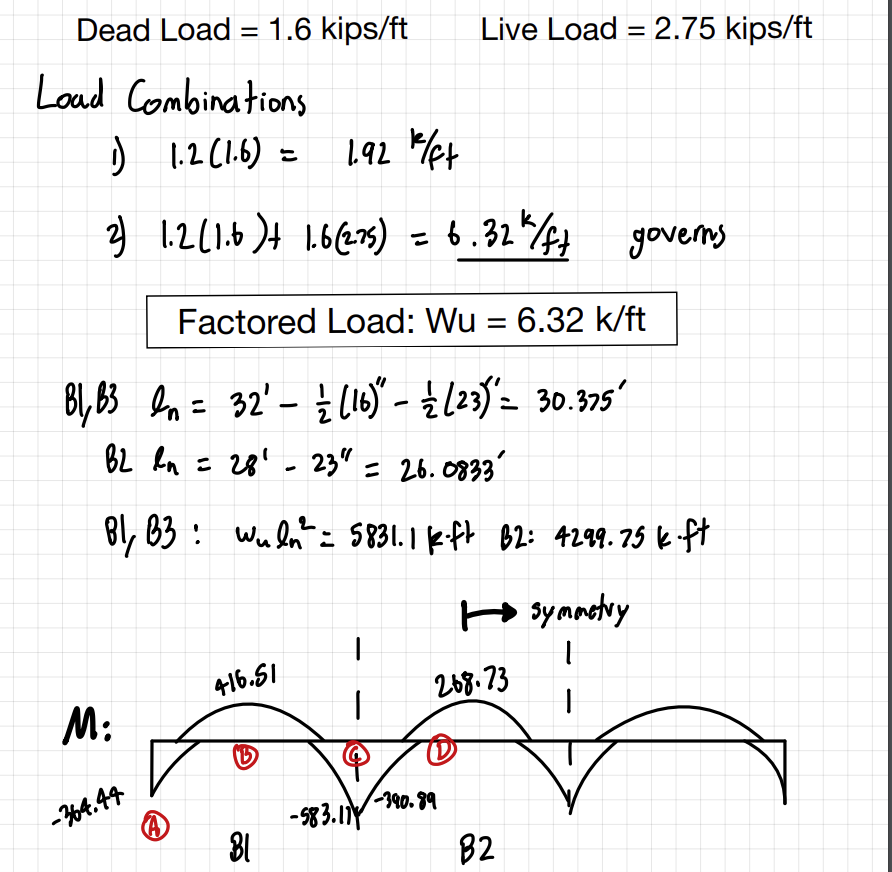 Dead Load = 1.6 kips/ft Live Load = 2.75 kips/ft
Load Combinations
1) 1.2(1.6) = 1.92 k/ft
2) 1.2(1.6)+ 1.6(2.75) = 6.32 k/ft governs
Factored Load: Wu = 6.32 k/ft
B1, B3 ln = 32' - 1/2(16)" - 1/2(23)" = 30.375'
B2 ln = 28' - 23" = 26.0833'
B1, B3: wu ln² = 5831.1 k·ft B2: 4299.75 k·ft
symmetry
416.51 268.73
M:
B C D
-364.44 -583.11 -390.89
A
B1 B2